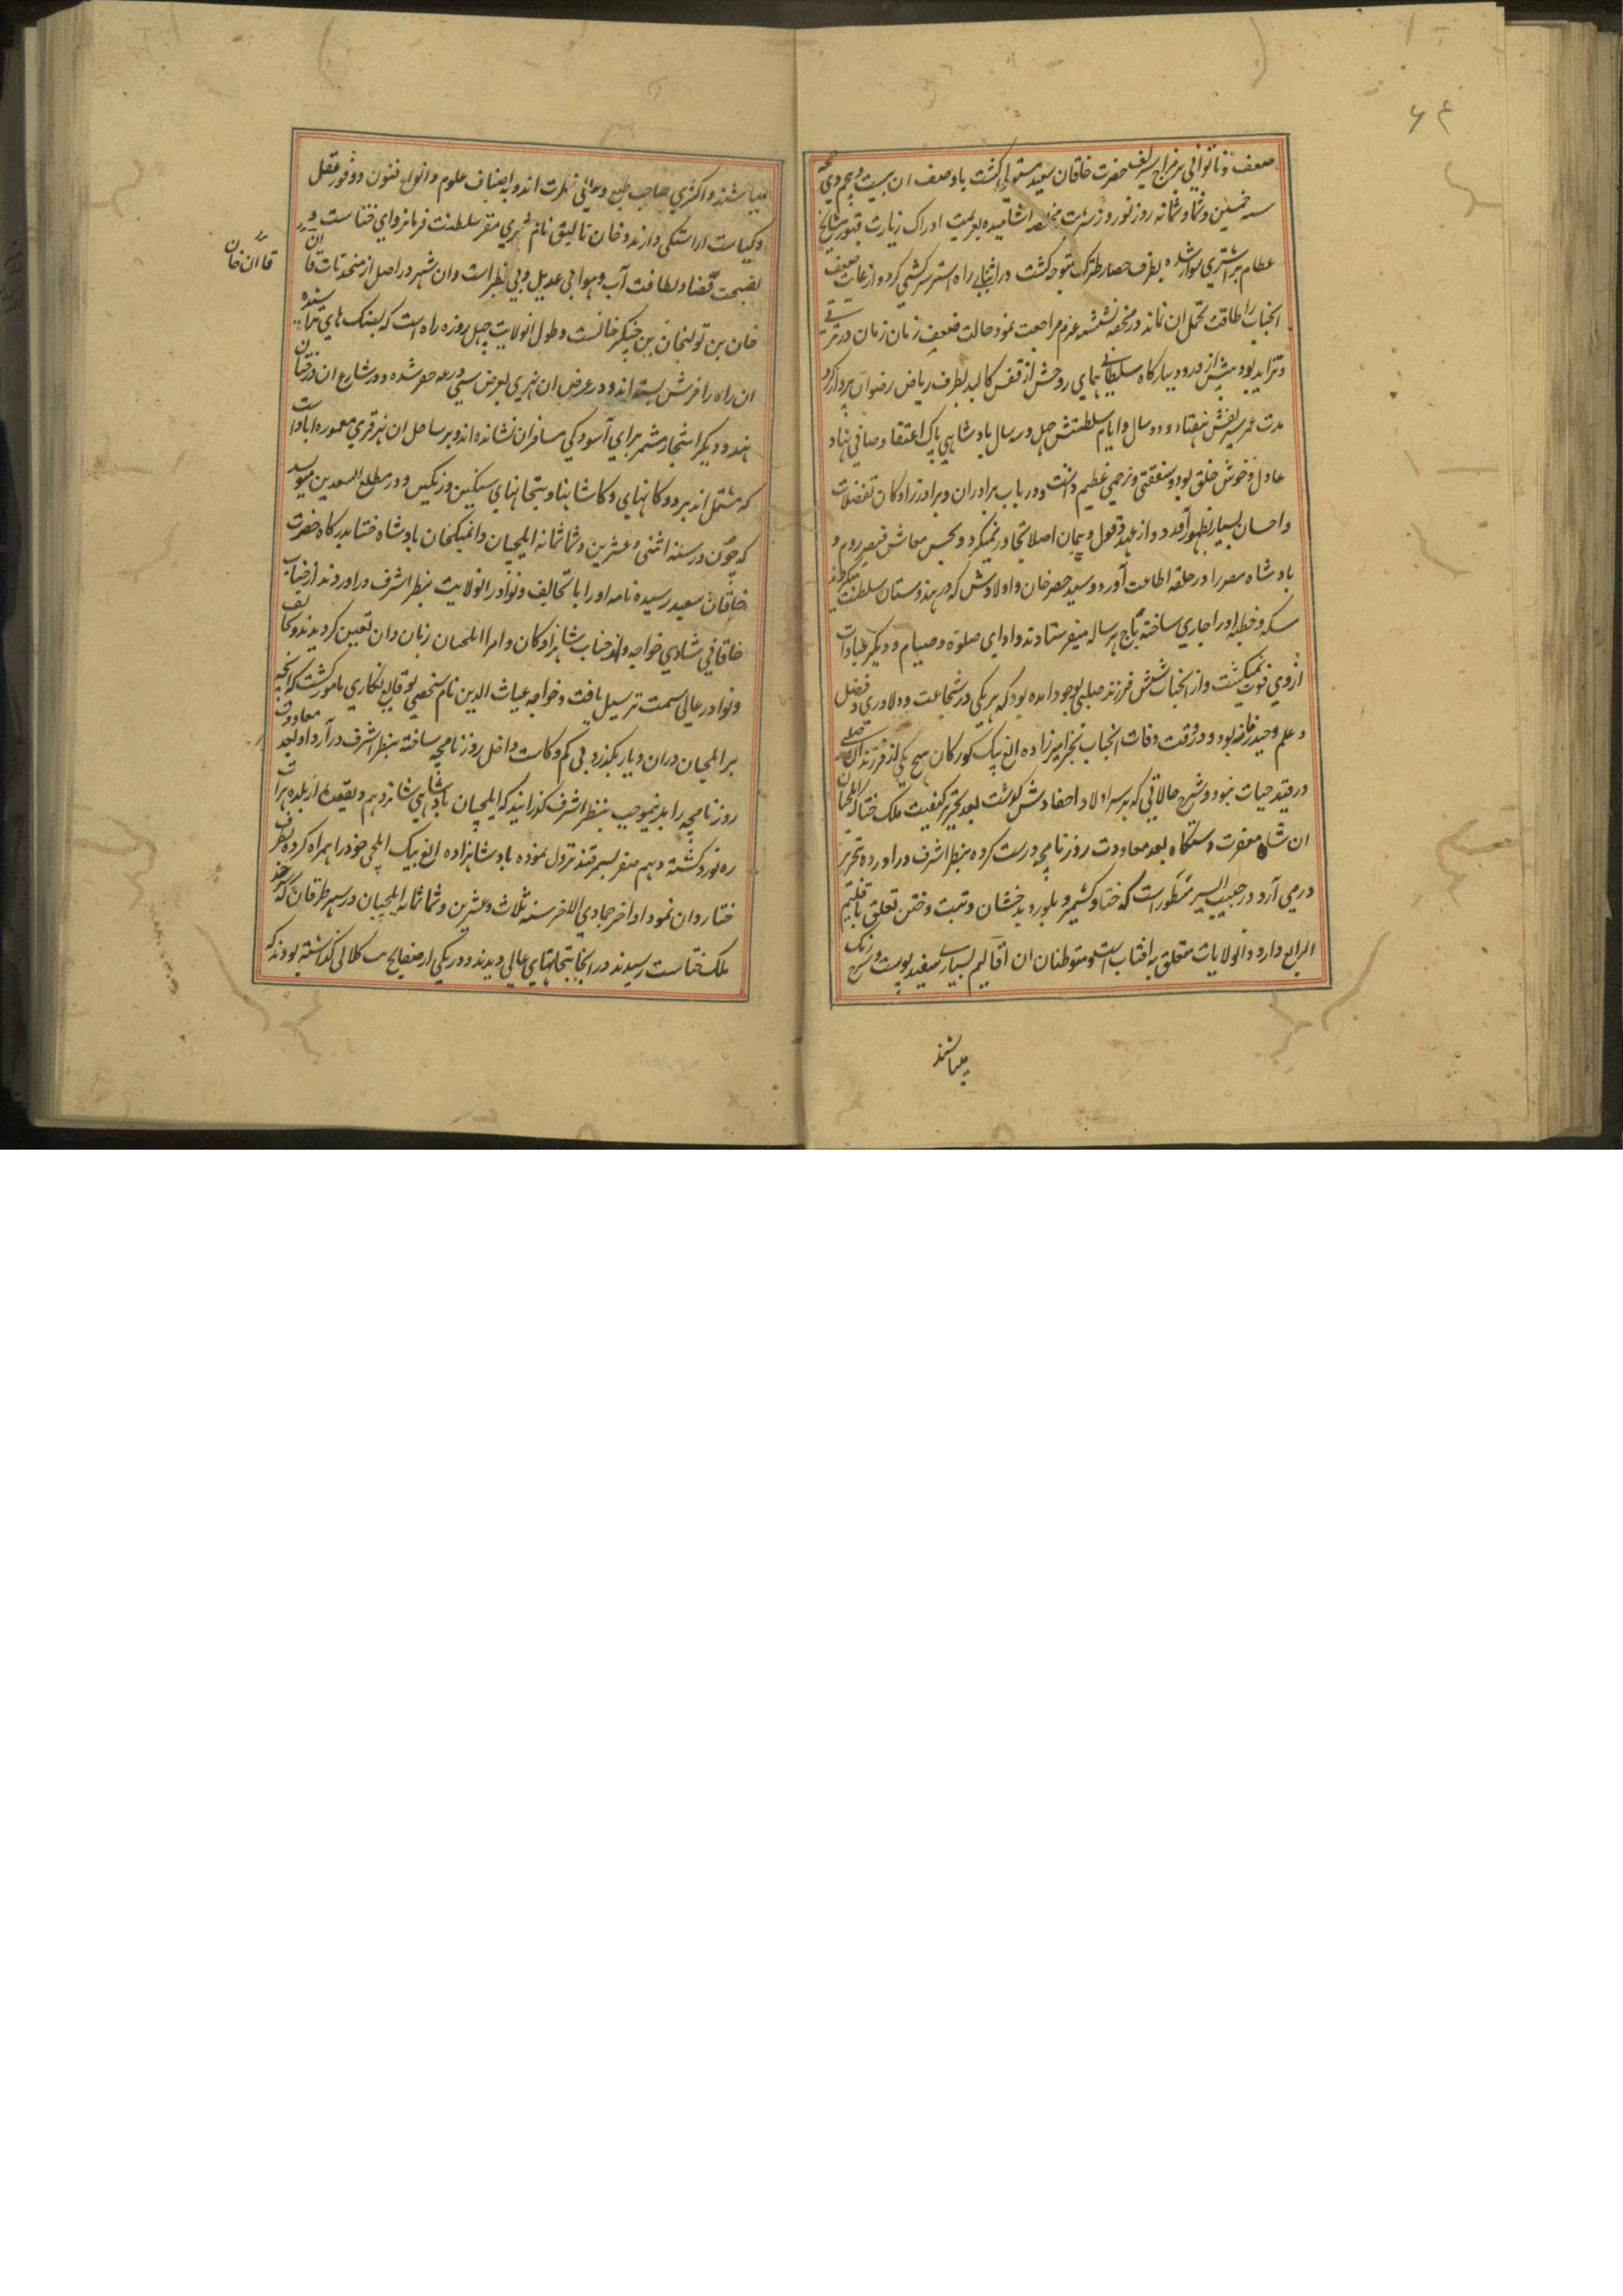 ۶۴
ضعف و ناتوانی بر مزاج شریف حضرت خاقان سعید مستولی گشت با وصف ان بیست و پنجم ذی حجه
سنه خمسین و ثماو ثمانه روز نوروز شربت اشامیده بعزیمت ادراک زیارت قبور مشایخ
عظام بر اشتری سوار شده بطرف حصار طبرک متوجه گشت در اثنای راه استر سرکشی کرد و از غایت ضعف
انجناب را طاقت تحمل ان نماند در محفه نشسته عزم مراجعت نمود حالت ضعف زمان زمان در ترقی
و تزاید بود پیش از ورود ببارگاه سلطانی همای روحش از قفس کالبد بطرف ریاض رضوان پرواز کرد
مدت عمر شریفش هفتاد و دو سال و ایام سلطنتش چهل و سه سال بادشاهی پاک اعتقاد و صافی نهاد
عادل و خوش خلق بود و شفقتی و ترحمی عظیم داشت و در باب برادران و برادرزادگان تفضلات
و احسان بسیار بظهور آورد و از عهد و قول و پیمان اصلا تجاوز نمیکرد و بحسن معاش قیصر روم و
بادشاه مصر را در حلقه اطاعت آورد و سید خضر خان و اولادش که در هندوستان سلطنت میکردند
سکه و خطبه او را جاری ساخته باج هر ساله میفرستادند و ادای صلوة و صیام و دیگر عبادات
ازوی فوت نمیگشت و از انجناب شش فرزند صلبی بوجود امده بود که هر یکی در شجاعت و دلاوری و فضل
و علم وحید زمانه بود و در وقت وفات انجناب بجز میرزاده الغ بیک کورکان هیچ یکی از فرزندان صلبی
در قید حیات نبود و شرح حالاتی که بر سر اولاد و احفادش گذشت بعد تحریر کیفیت ملک ختا که ایلچیان
ان شاه مغفرت دستگاه بعد معاودت روزنامچه درست کرده بنظر اشرف در اورده تحریر
در می آرد در حبیب السیر مسطور است که ختا و کشمیر و بلور و بدخشان و تبت و ختن تعلق باقلیم
الرابع دارد و انولایات متعلق به افتاب است و متوطنان ان اقالیم بسیار سفید پوست و سرخ رنگ
میباشند
میباشند و اکثری صاحب طبع و عالی فطرت اند و به اصناف علوم و انواع فنون و وفور عقل
و کیاست اراستگی دارند و خان تالیق نام شهری مقر سلطنت فرمانروای ختاست و در
بفسحت فضا و لطافت آب و هوا بی عدیل و بی نظیر است و ان شهر در اصل از مستحدثات قاآن
قاان خان
خان بن تولیخان بن چنگیز خانست و طول انولایت چهل روزه راه است که بسنگ های تراشیده
ان راه را فرش بسته اند و در عرض ان نهری بعرض سی ذرعه حفر شده و در شارع ان درختان
هند و دیگر اشجار مثمر برای آسودگی مسافران نشانده اند و بر ساحل ان نهر قری معموره اباد است
که مشتمل اند بر دوکانهای و کاشانها و بتخانهای سنگین و رنگین و در مطلع السعدین مینویسد
که چون در سنه اثنی و عشرین و ثما ثمانه ایلچیان دایمنگخان بادشاه ختا بدرگاه حضرت
خاقان سعید رسیده نامه او را با تحایف و نوادر انولایت بنظر اشرف در اوردند از جناب
خاقانی شادی خواجه و از جناب شاهزادگان و امرا ایلچیان زبان دان تعیین گردیدند و تحایف
و نوادر عالی سمت ترسیل یافت و خواجه غیاث الدین نام شخصی بوقایع نگاری مامور گشت که انچه
بر ایلچیان دران دیار بگذرد بی کم و کاست داخل روزنامچه ساخته بنظر اشرف در آرد او بعد معاودت
روزنامچه را بدینموجب بنظر اشرف گذرانید که ایلچیان بادشاهی شانزدهم ذیقعده از بلده هرات
ره نورد گشته دهم صفر بسمرقند نزول نموده بادشاهزاده الغ بیک ایلچی خود را همراه کرده بطرف
ختا روان نمود اواخر جمادی الاخر سنه ثلاث و عشرین و ثما ثمانه ایلچیان در شهر طرقان که سرحد
ملک ختاست رسیدند در انجا بتخانهای عالی دیدند و در یکی ازمنها بت کلانی گذاشته بودند که